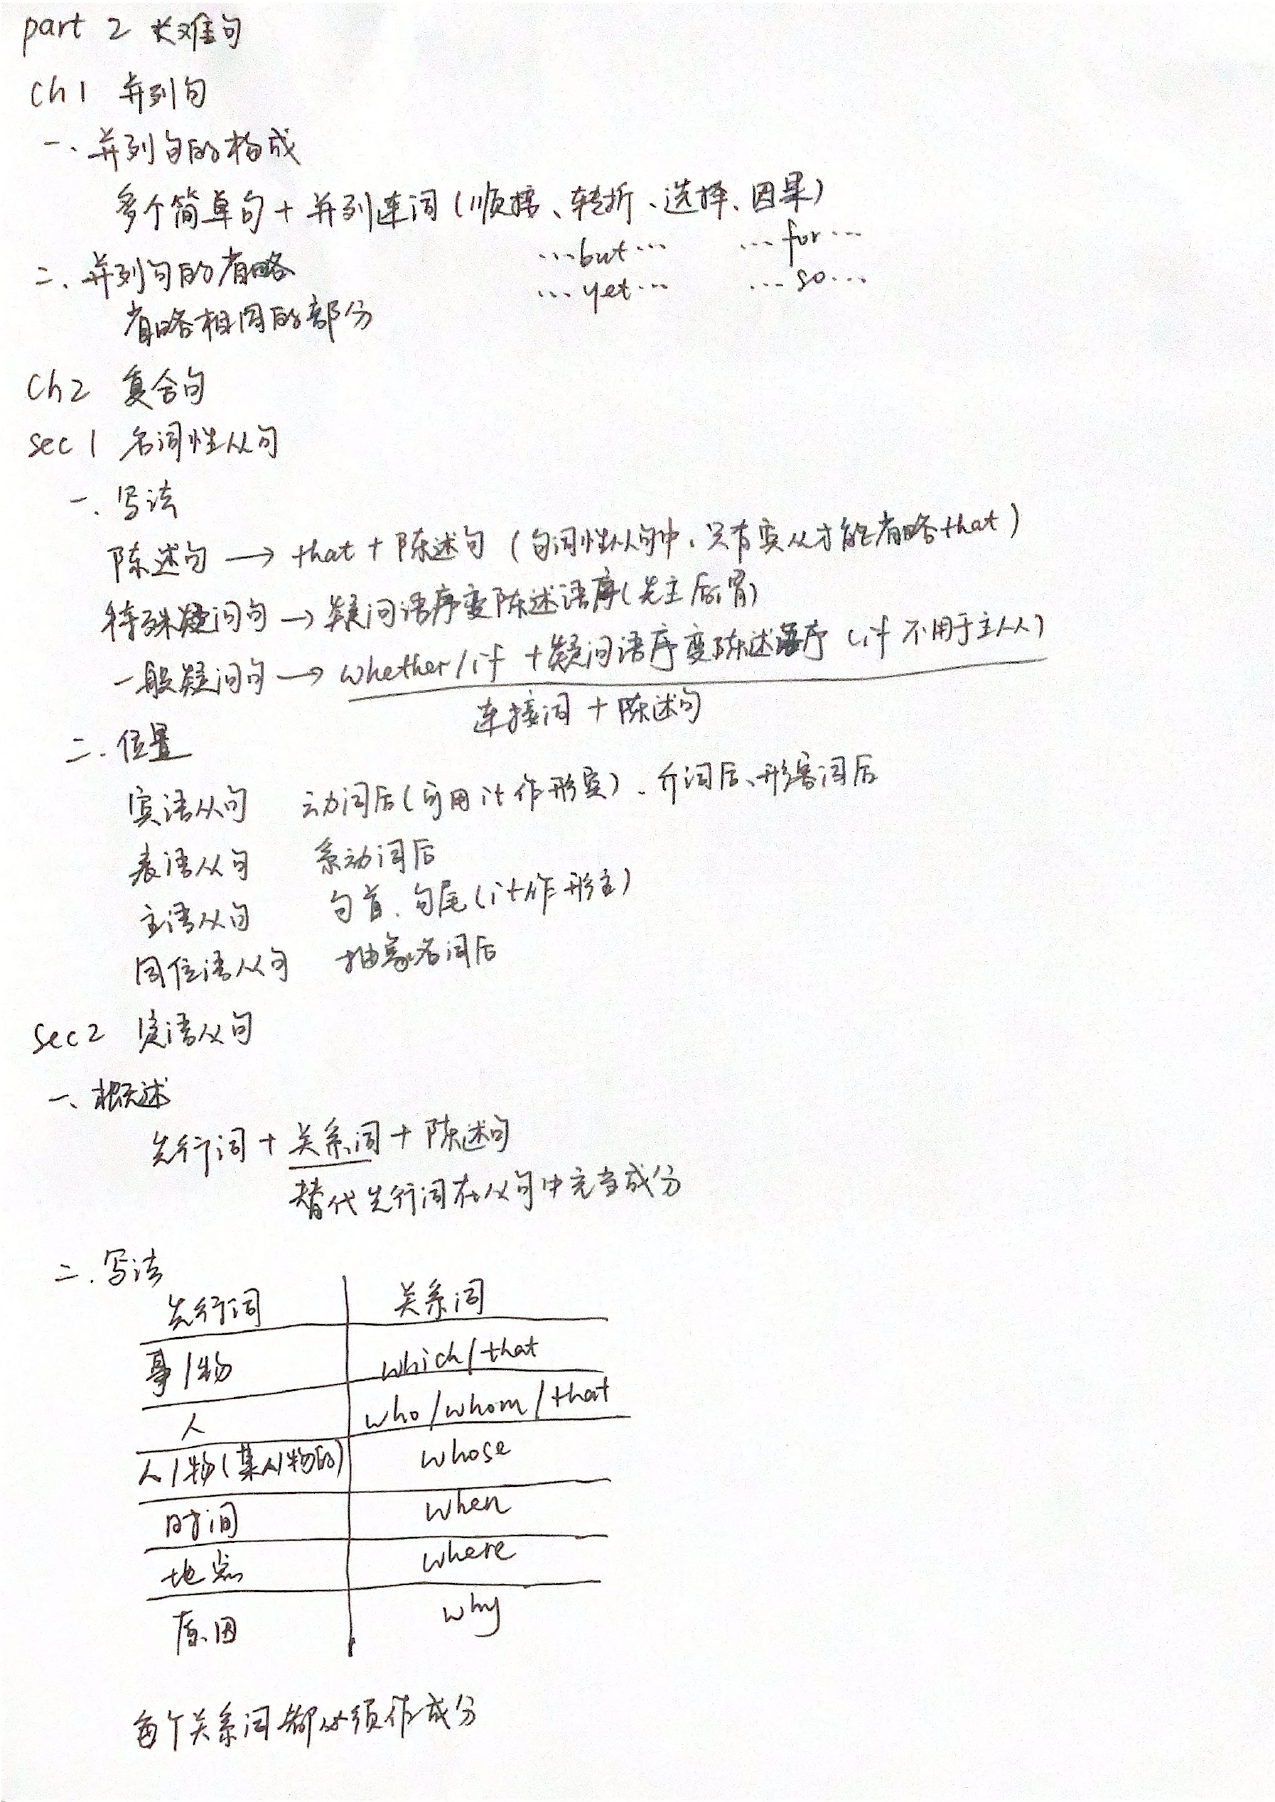 part 2 长难句
ch1 并列句
一、并列句的构成
多个简单句 + 并列连词 (顺接、转折、选择、因果)
…but… …for…
…yet… …so…
二、并列句的省略
省略相同的部分
Ch2 复合句
sec1 名词性从句
一. 写法
陈述句 → that + 陈述句 (名词性从句中,只有宾从才能省略that)
特殊疑问句 → 疑问语序变陈述语序(先主后谓)
一般疑问句 → whether/if + 疑问语序变陈述语序 (if 不用于主从)
连接词 + 陈述句
二. 位置
宾语从句 动词后(可用it作形宾)、介词后、形容词后
表语从句 系动词后
主语从句 句首、句尾(it作形主)
同位语从句 抽象名词后
Sec2 定语从句
一、概述
先行词 + 关系词 + 陈述句
替代先行词在从句中充当成分
二. 写法
先行词 关系词
事/物 which/that
人 who/whom/that
人/物(某人/物的) whose
时间 when
地点 where
原因 why
每个关系词都必须作成分